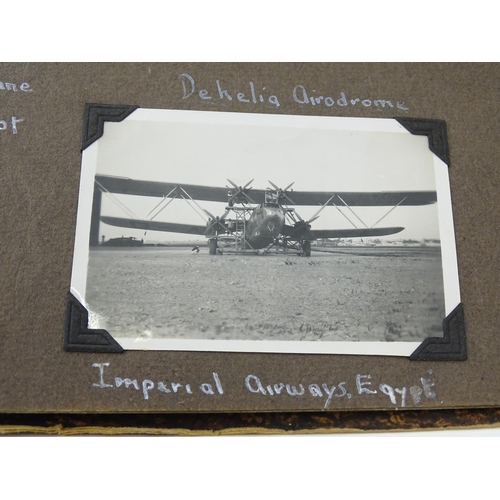 Dekelia Airodrome
Imperial Airways, Egypt